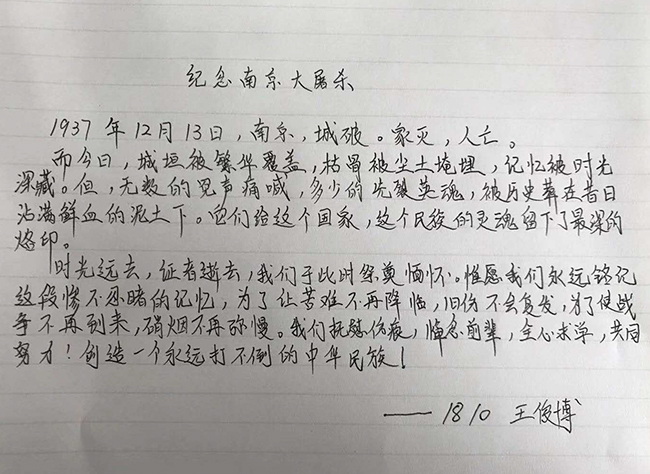 纪念南京大屠杀
1937年12月13日，南京，城破。家灭，人亡。
而今日，城垣被繁华覆盖，枯骨被尘土掩埋，记忆被时光
深藏。但，无数的冤声痛喊，多少的先辈英魂，被历史葬在昔日
沾满鲜血的泥土下。它们给这个国家，这个民族的灵魂留下了最深的
烙印。
时光远去，证者逝去，我们于此时祭奠缅怀。惟愿我们永远铭记
这段惨不忍睹的记忆，为了让苦难不再降临，旧伤不会复发，为了使战
争不再到来，硝烟不再弥慢。我们抚慰伤痕，悼念前辈，全心求学，共同
努力！创造一个永远打不倒的中华民族！
——1810 王俊博